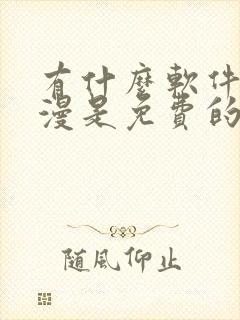 有什麼軟件
漫是免費的
隨風仰止